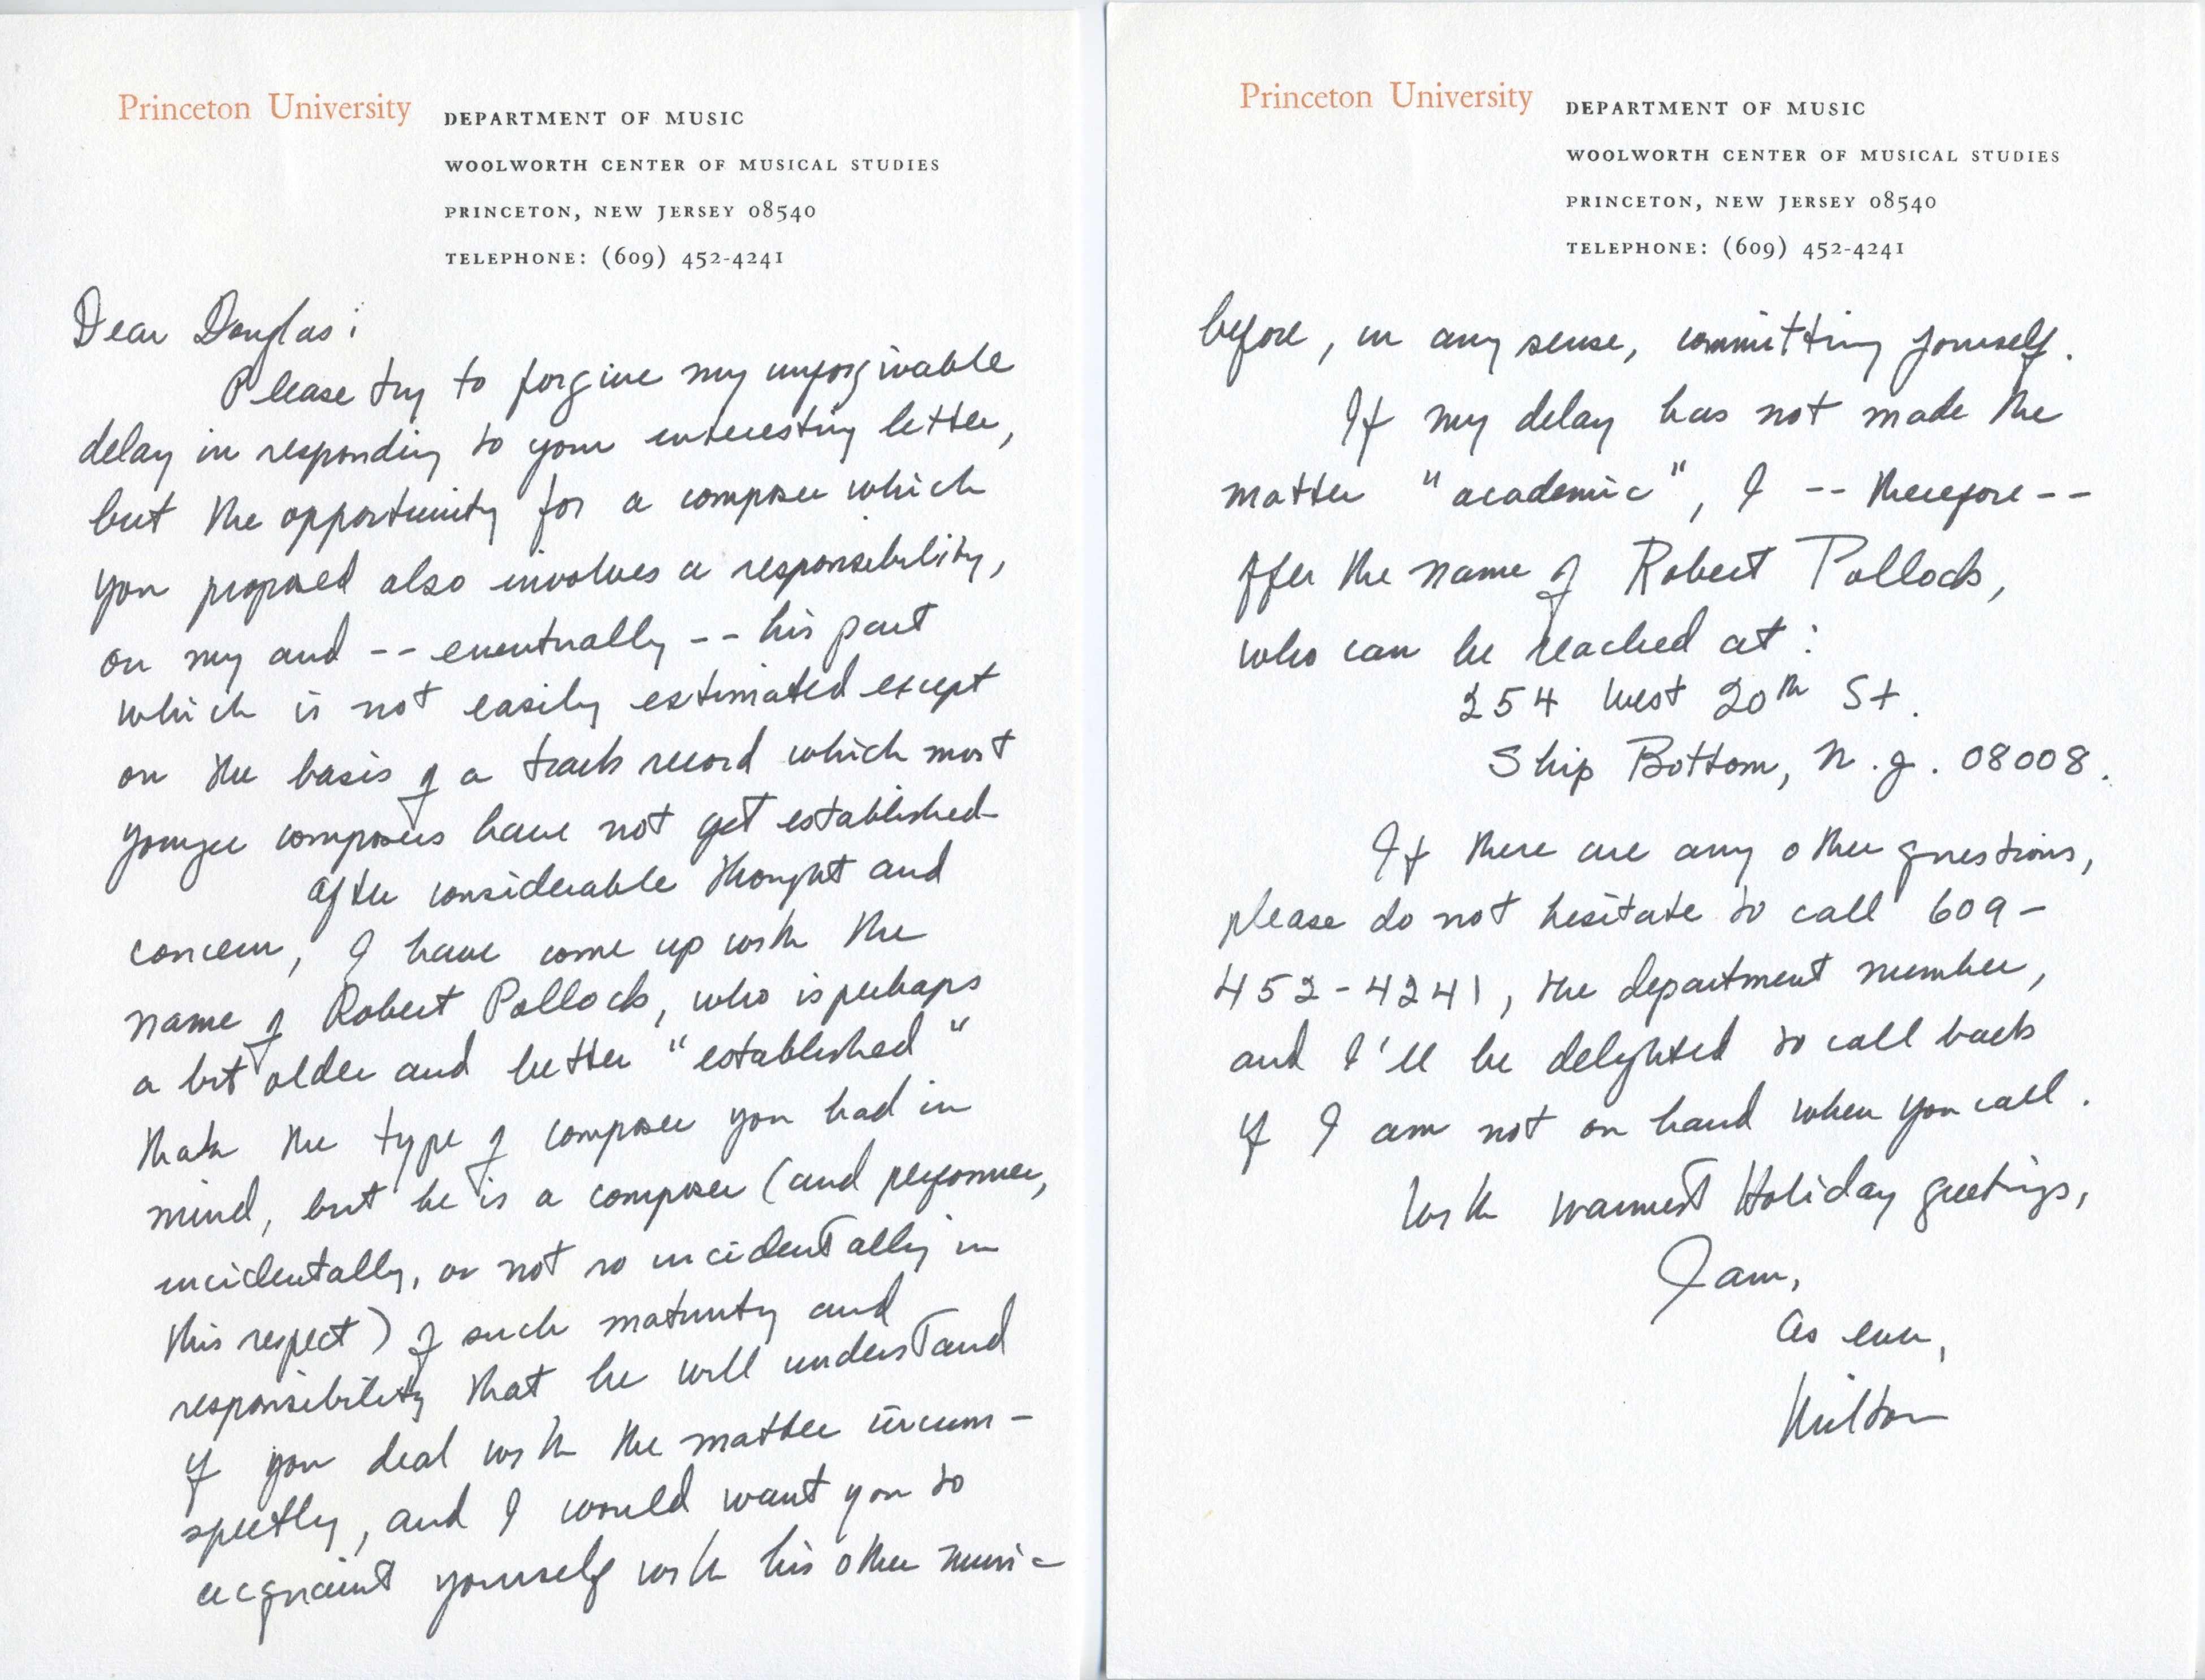 Princeton University
DEPARTMENT OF MUSIC
WOOLWORTH CENTER OF MUSICAL STUDIES
PRINCETON, NEW JERSEY 08540
TELEPHONE: (609) 452-4241
Dear Douglas:
Please try to forgive my unforgivable
delay in responding to your interesting letter,
but the opportunity for a composer which
you proposed also involves a responsibility,
on my and -- eventually -- his part
which is not easily estimated except
on the basis of a track record which most
younger composers have not yet established.
After considerable thought and
concern, I have come up with the
name of Robert Pollock, who is perhaps
a bit older and better "established"
than the type of composer you had in
mind, but he is a composer (and performer,
incidentally, or not so incidentally in
this respect) of such maturity and
responsibility that he will understand
if you deal with the matter circum-
spectly, and I would want you to
acquaint yourself with his other music
Princeton University
DEPARTMENT OF MUSIC
WOOLWORTH CENTER OF MUSICAL STUDIES
PRINCETON, NEW JERSEY 08540
TELEPHONE: (609) 452-4241
before, in any sense, committing yourself.
If my delay has not made the
matter "academic", I -- therefore --
offer the name of Robert Pollock,
who can be reached at:
254 West 20th St.
Ship Bottom, N.J. 08008.
If there are any other questions,
please do not hesitate to call 609-
452-4241, the department number,
and I'll be delighted to call back
if I am not on hand when you call.
With warmest Holiday greetings,
I am,
As ever,
Milton